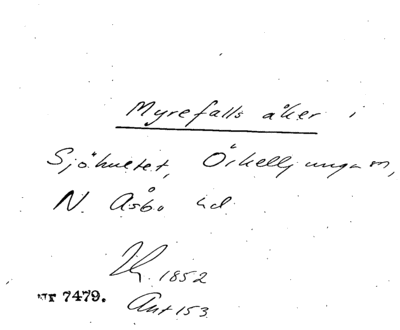 Myrefalls åker i
Sjöhultet, Örkelljunga sn,
N. Åsbo hd
1852
Nr 7479.
Ant 153